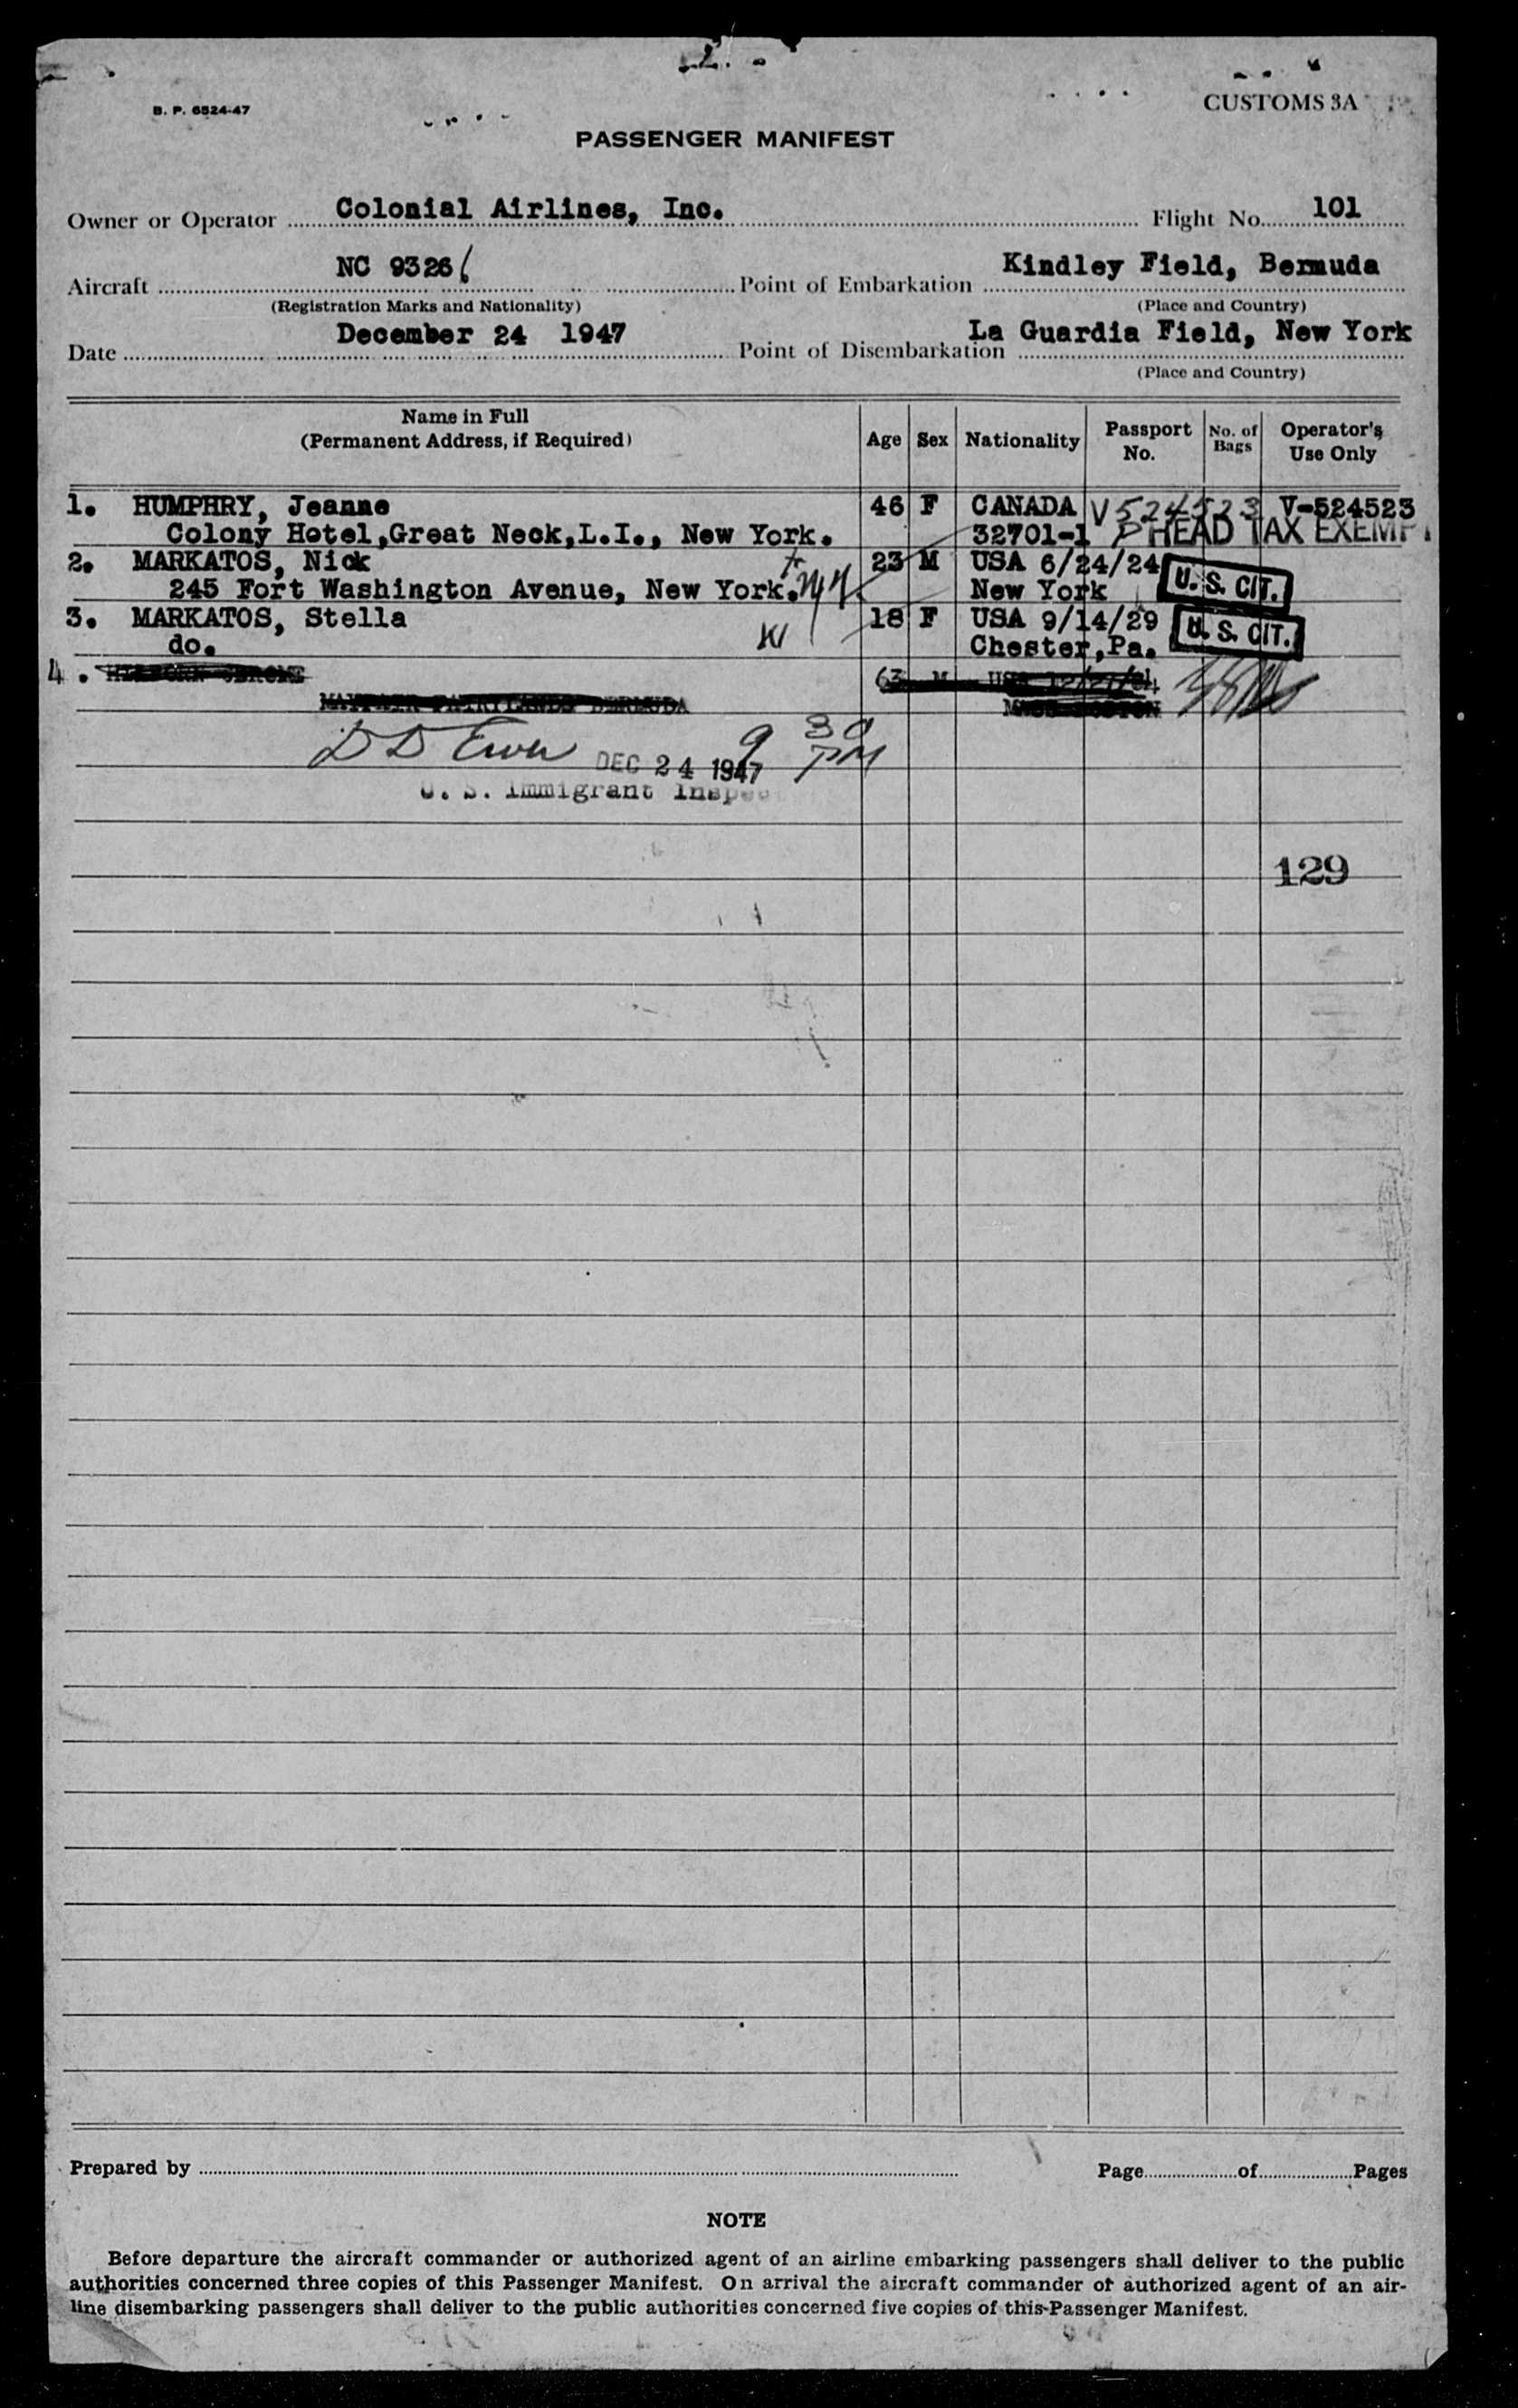 B. P. 6524-47
CUSTOMS 3A
PASSENGER MANIFEST
Owner or Operator Colonial Airlines, Inc. Flight No. 101
Aircraft NC 93261 Point of Embarkation Kindley Field, Bermuda
(Registration Marks and Nationality) (Place and Country)
Date December 24 1947 Point of Disembarkation La Guardia Field, New York
(Place and Country)
Name in Full
(Permanent Address, if Required) Age Sex Nationality Passport No. No. of Bags Operator's Use Only
1. HUMPHRY, Jeanne 46 F CANADA V524523 V-524523
Colony Hotel,Great Neck,L.I., New York. 32701-1 P HEAD TAX EXEMPT
2. MARKATOS, Nick 23 M USA 6/24/24 U. S. CIT.
245 Fort Washington Avenue, New York. New York
3. MARKATOS, Stella 18 F USA 9/14/29 U. S. CIT.
do. Chester,Pa.
4. 63 M
BERMUDA
DEC 24 1947 9 30 PM
U. S. Immigrant
129
Prepared by Page of Pages
NOTE
Before departure the aircraft commander or authorized agent of an airline embarking passengers shall deliver to the public
authorities concerned three copies of this Passenger Manifest. On arrival the aircraft commander or authorized agent of an air-
line disembarking passengers shall deliver to the public authorities concerned five copies of this Passenger Manifest.